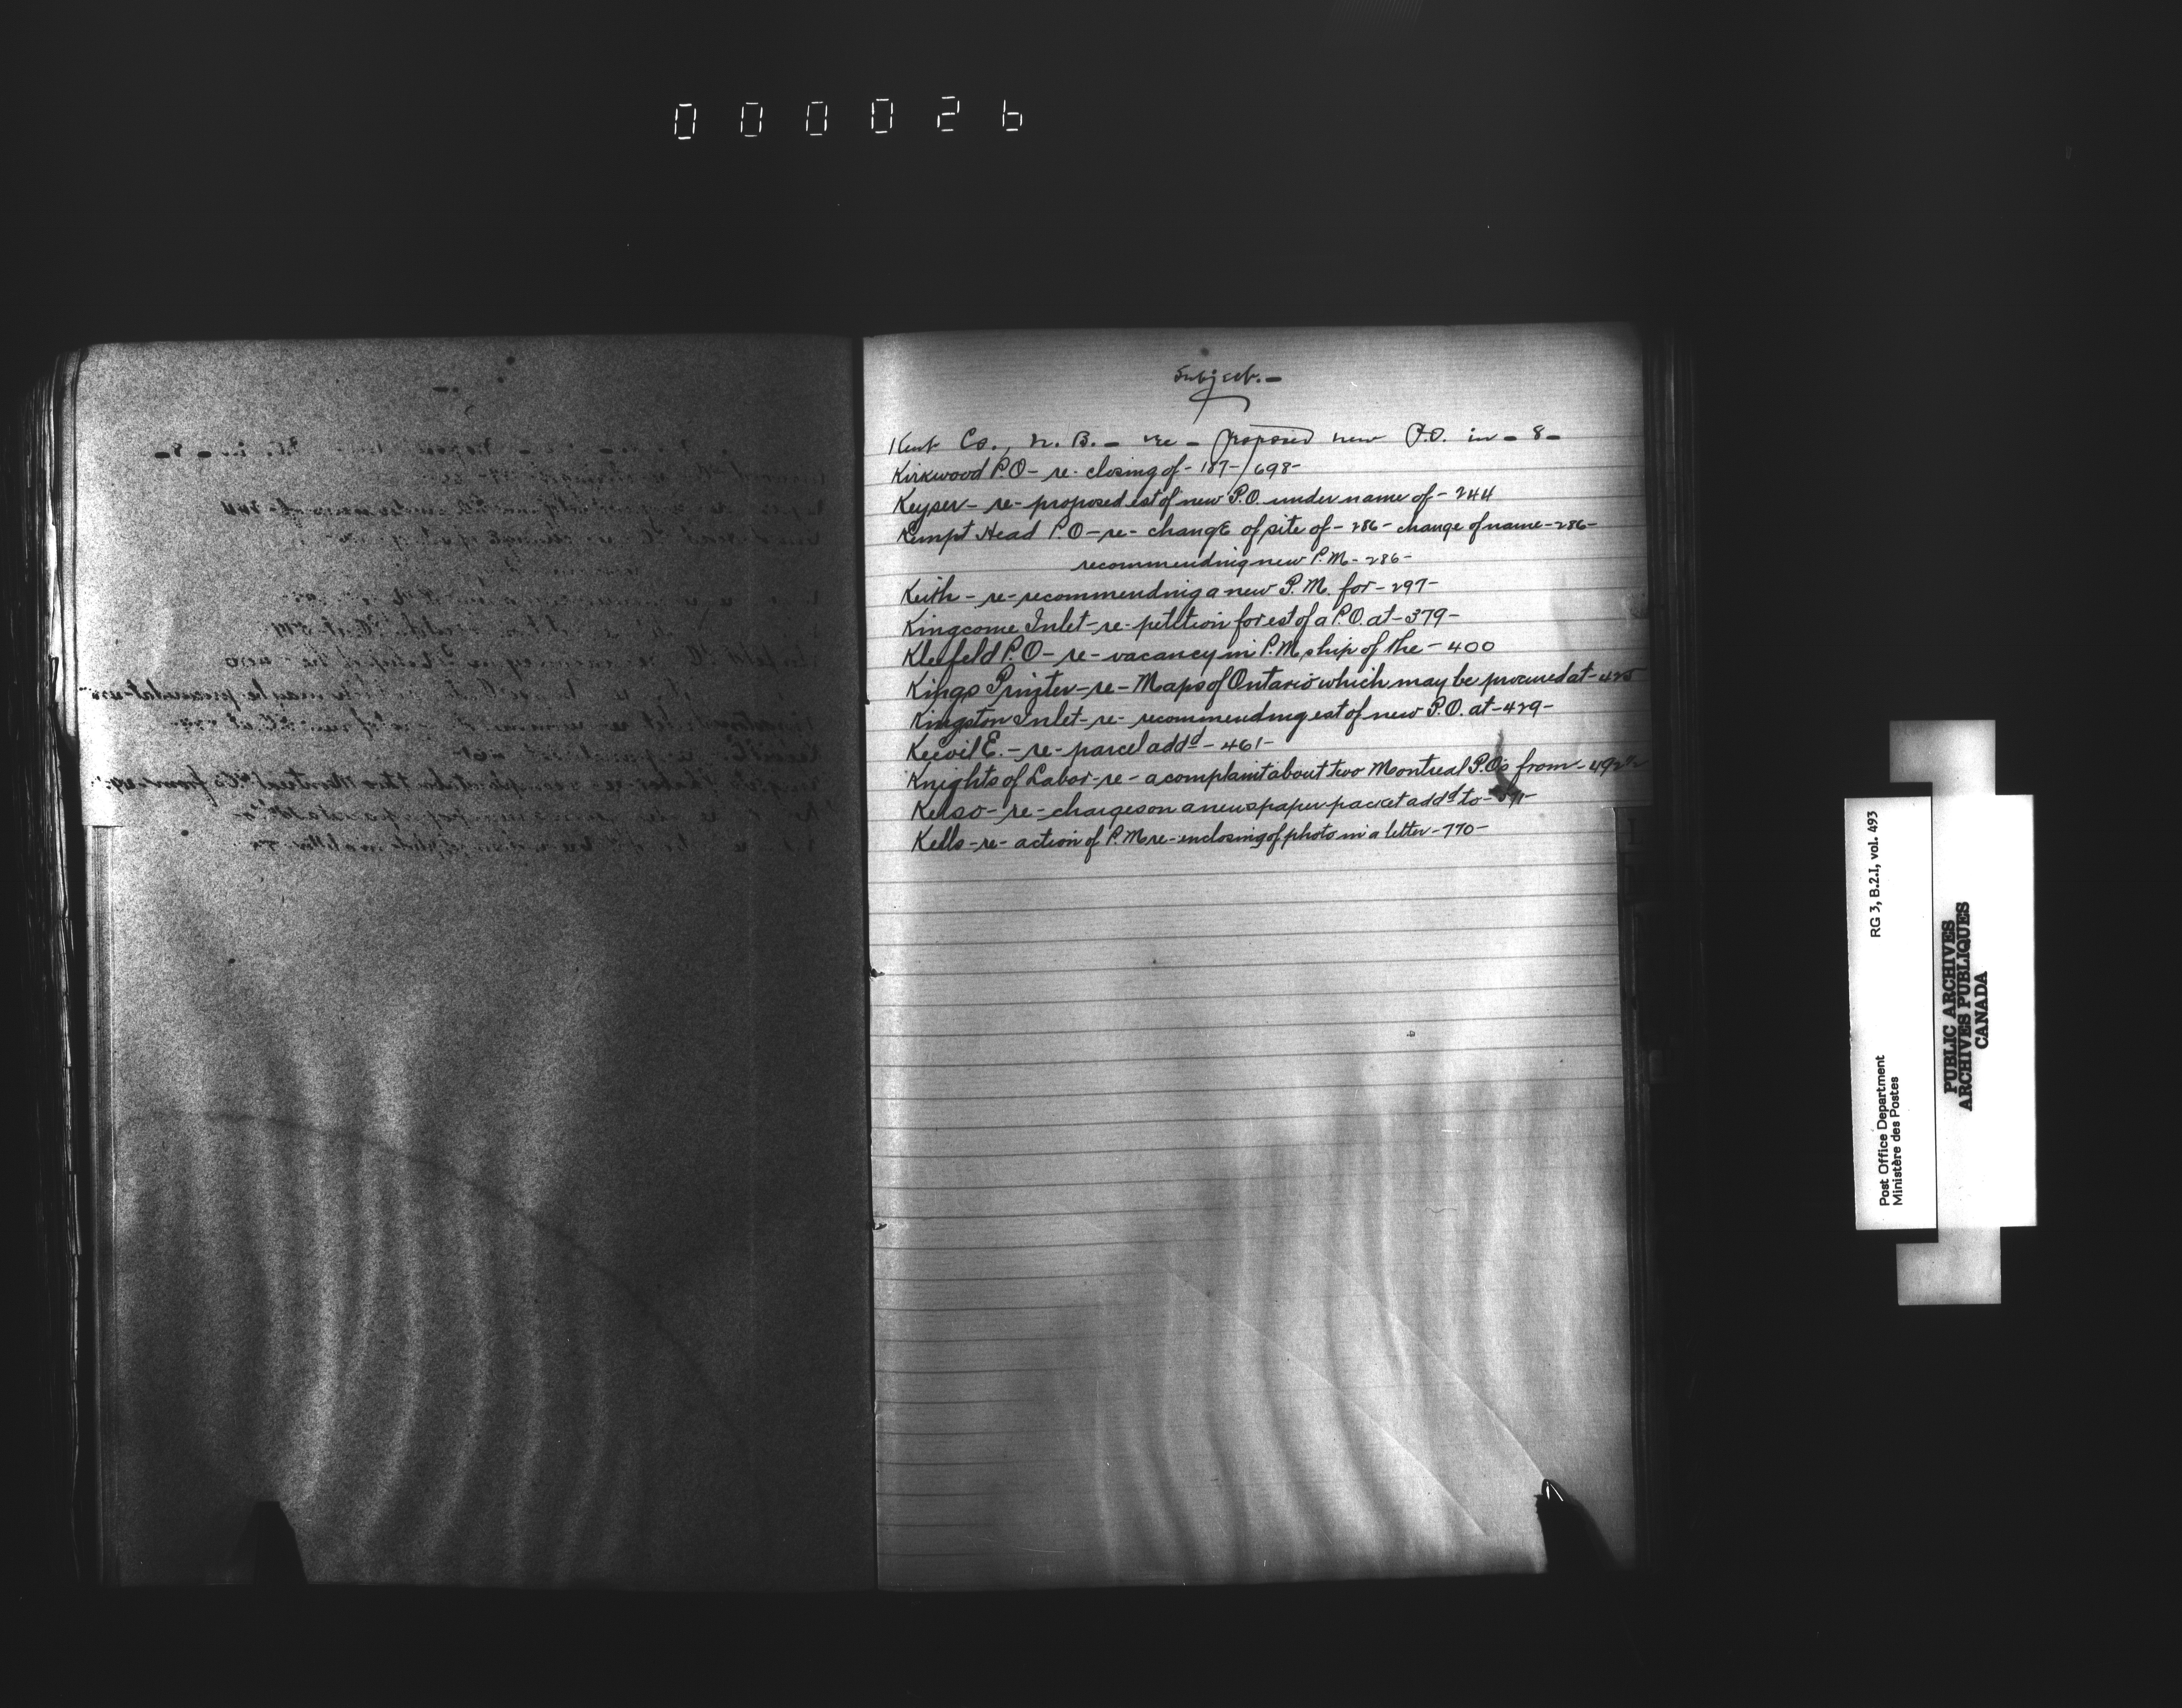 000026
Subject.-
Kent Co., N. B. - re - proposed new P.O. in - 8 -
Kirkwood P.O - re - closing of - 187-/698-
Keyser - re - proposed est of new P.O. under name of - 244
Kempt Head P.O - re - change of site of - 286 - change of name - 286 -
recommending new P.M - 286 -
Keith - re - recommending a new P.M. for - 297 -
Kingcome Inlet - re - petition for est of a P.O. at - 379 -
Kleefeld P.O - re - vacancy in P.M. ship of the - 400
Kings Printer - re - Maps of Ontario which may be procured at - 425
Kingston Inlet - re - recommending est of new P.O. at - 429 -
E. - re - parcel addd - 461 -
Knights of Labor - re - a complaint about two Montreal P.O's from -
Kelso - re - charges on a newspaper packet addd to -
Kells - re - action of P.M re - enclosing of photo in a letter - 770 -
RG 3, B.2.I, vol. 493
Post Office Department
Ministère des Postes
PUBLIC ARCHIVES
ARCHIVES PUBLIQUES
CANADA